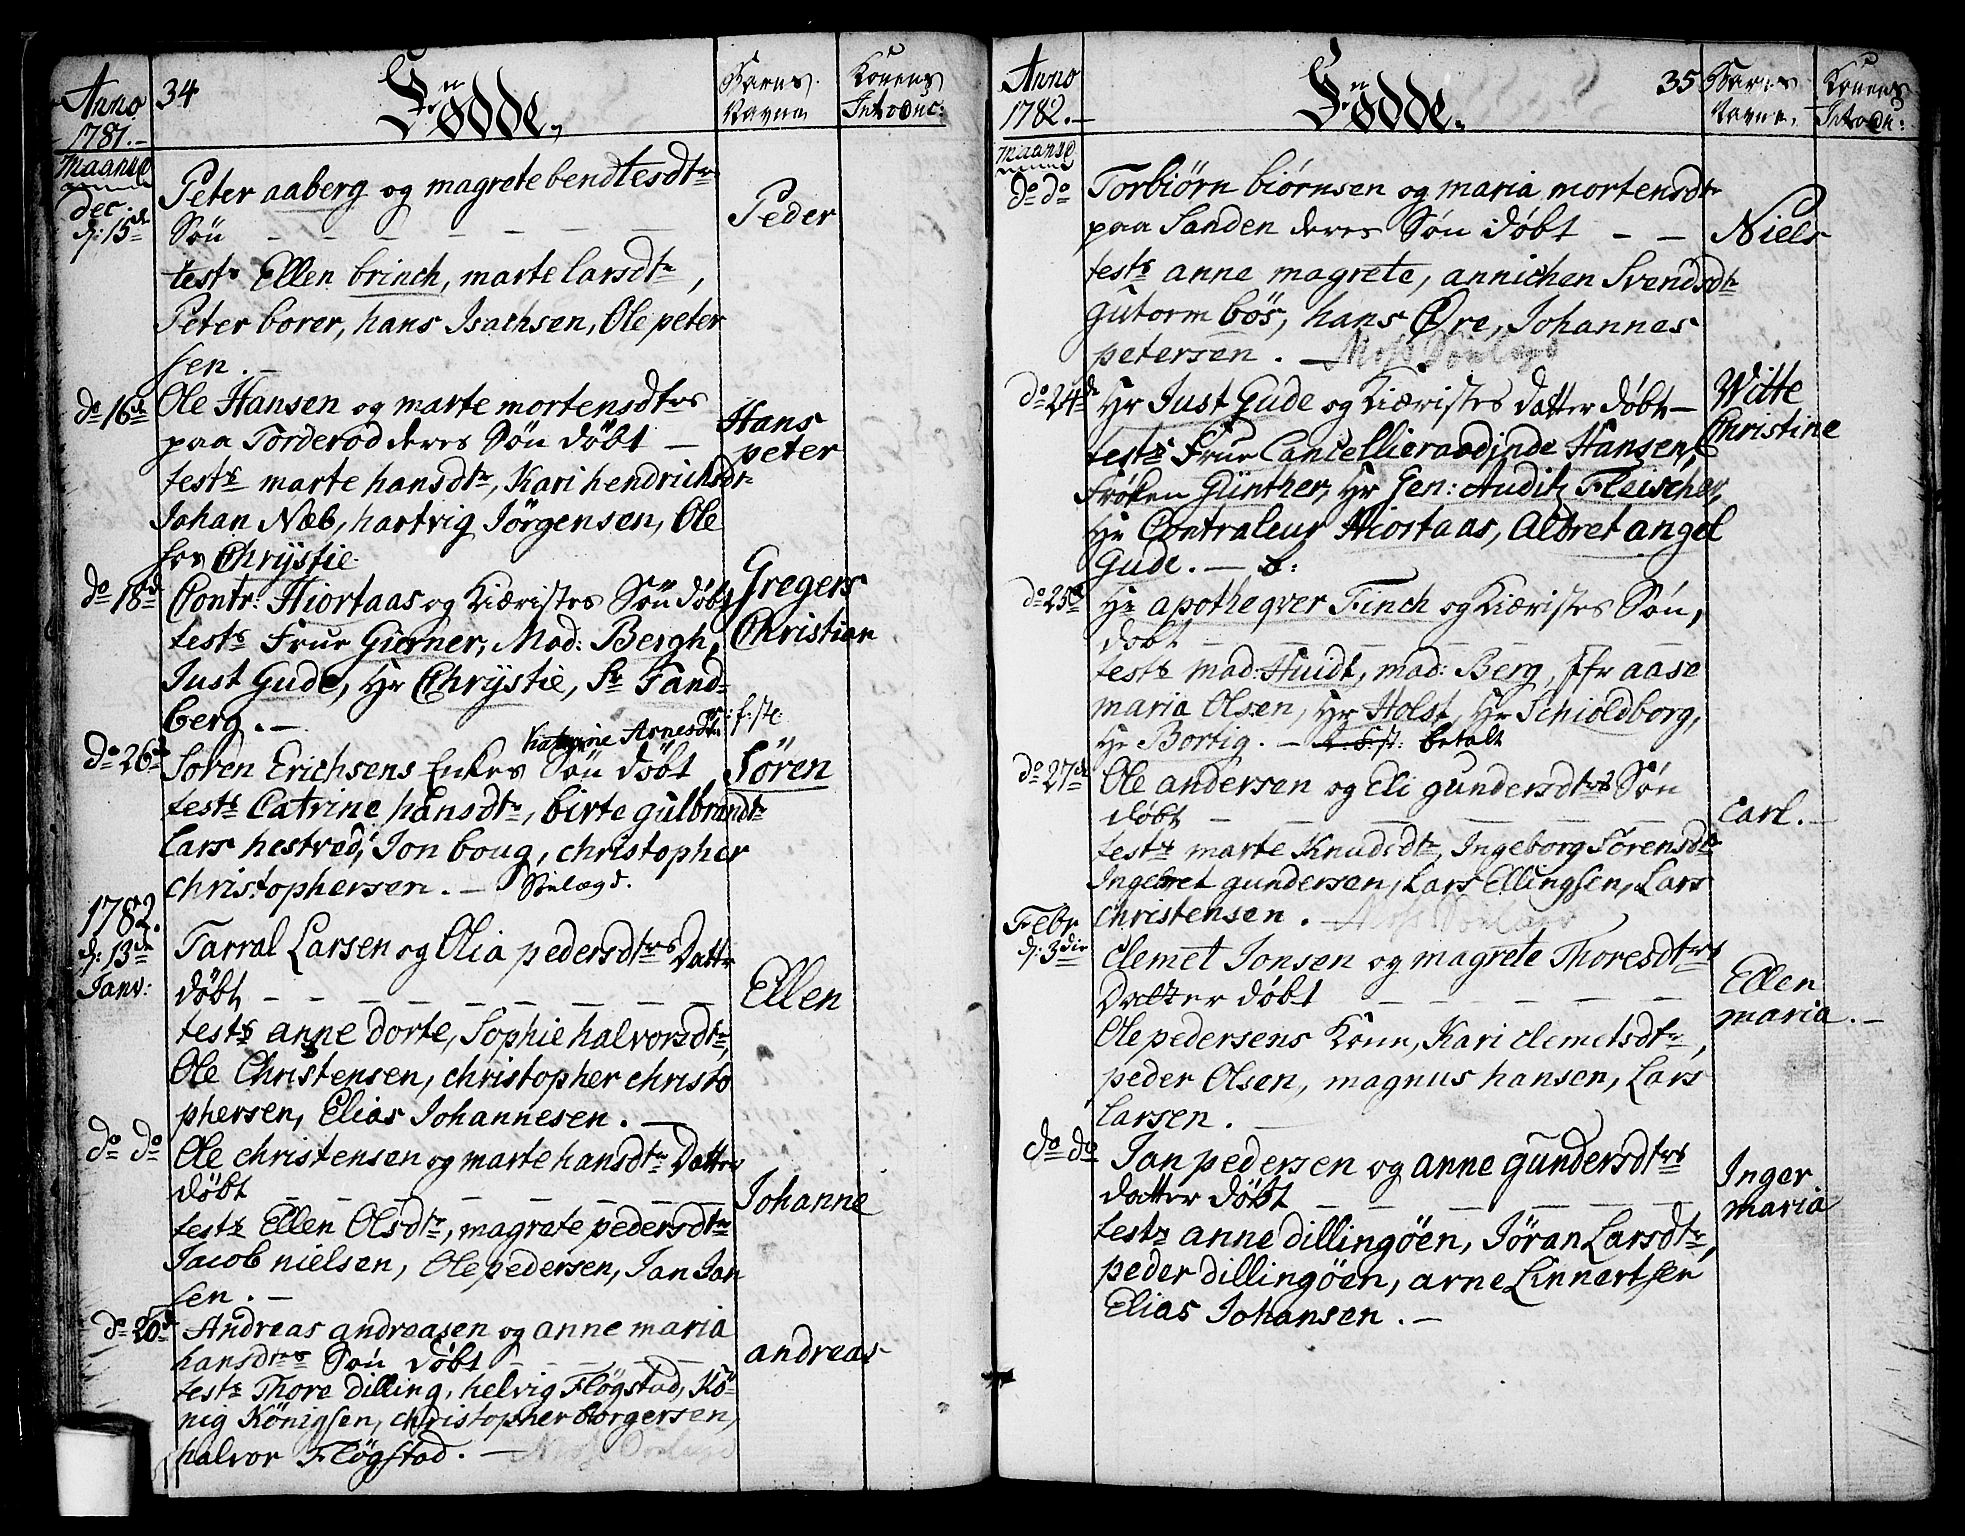 Anno
1781.-
34
Fødde.
Barns
Navne
Konens
Introduc:
Maaned
Dec.
d: 15de
Peter aaberg og magrete bendtesdtr
Søn
Peder
test: Ellen brinch, marte larsdtr,
Peter borer, hans Isachsen, Ole peter
sen.-
do 16de
Ole Hansen og marte mortensdtrs
paa Torderød deres Søn døbt -
Hans
peter
test: marte hansdtr, Kari hendrichsdtr
Johan Næb, hartvig Jörgensen, Ole
Chrystie
do 18de
Contr: Hiortaas og Kiæristes Søn døbt
Gregers
Christian
test: Frue Gierner, Mad: Bergh,
Just Gude, Hr Chrystie, Sr Tand-
berg.-
Katrine Arnesdtr
do 26de
Søren Erichsens Enkes Søn døbt
Sören
test: Catrine hansdtr, birte gulbrandtr
Lars hestrød, Jon boug, christopher
christophersen.-
1782.
d: 13de
Janv:
Tarral Larsen og Olia pedersdtrs Datter
døbt
Ellen
test: anne dorte, Sophie halvorsdtr,
Ole Christensen, christopher christo
phersen, Elias Johannesen.-
do do
Ole christensen og marte hansdtr Datter
døbt
Johanne
test: Ellen Olsdtr, magrete pedersdtr
Jacob nielsen, Ole pedersen, Jan Jan
sen.-
do 20de
Andreas andreasen og anne maria
hansdtrs Søn døbt
andreas
test: Thore dilling, helvig Flögstad, Kö-
nig Königsen, christopher borgersen,
halvor Flögstad.-
Anno
1782.-
Fødde.
35
Barnes
Navne.
Konens
Introdu:
Maaned
do do
Torbiørn biørnsen og maria mortensdtr
paa Sanden deres Søn døbt - -
Niels
test: anne magrete, annichen Svendsdtr
gutorm bös, hans Øre, Johannes
petersen.-
do 24de
Hr Just Gude og Kiæristes datter døbt-
Witte
Christine
test: Frue Cancellieraadinde Hansen,
Frøken Günther, Hr Gen: Audit: Fleischer,
Hr Contraleur Hiortaas, Albret angel
Gude.-
do 25de
Hr apotheqver Finch og Kiæristes Søn,
døbt
test: mad: Huidt, mad: Berg, Jfr aase
maria Olsen, Hr Holst, Hr Schioldborg,
Hr Bortig.- betalt
do 27de
Ole andersen og Eli gundersdtrs Søn
døbt
carl.-
test: marte Knudsdtr, Ingeborg Sørensdtr
Ingebret gundersen, Lars Ellingsen, Lars
christensen.-
Febr
d: 3die
Clemet Jonsen og magrete Thoresdtrs
Datter døbt
Ellen
maria.-
Ole pedersens Kone, Kari clemetsdtr,
peder Olsen, magnus hansen, Lars
Larsen.-
do do
Jan pedersen og anne gundersdtrs
datter døbt
Inger
maria
test: anne dillingöen, Jöran Larsdtr,
peder dillingöen, arne Linnertsen
Elias Johansen.-